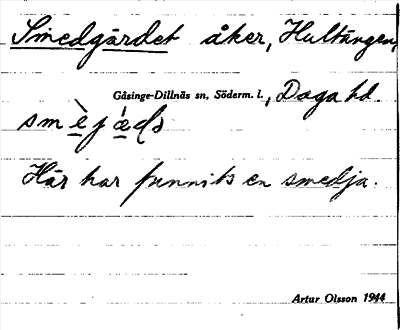 Smedgärdet åker, Hultängen,
Gåsinge-Dillnäs sn, Söderm. l., Daga hd
smèjáds
Här har funnits en smedja.
Artur Olsson 1944